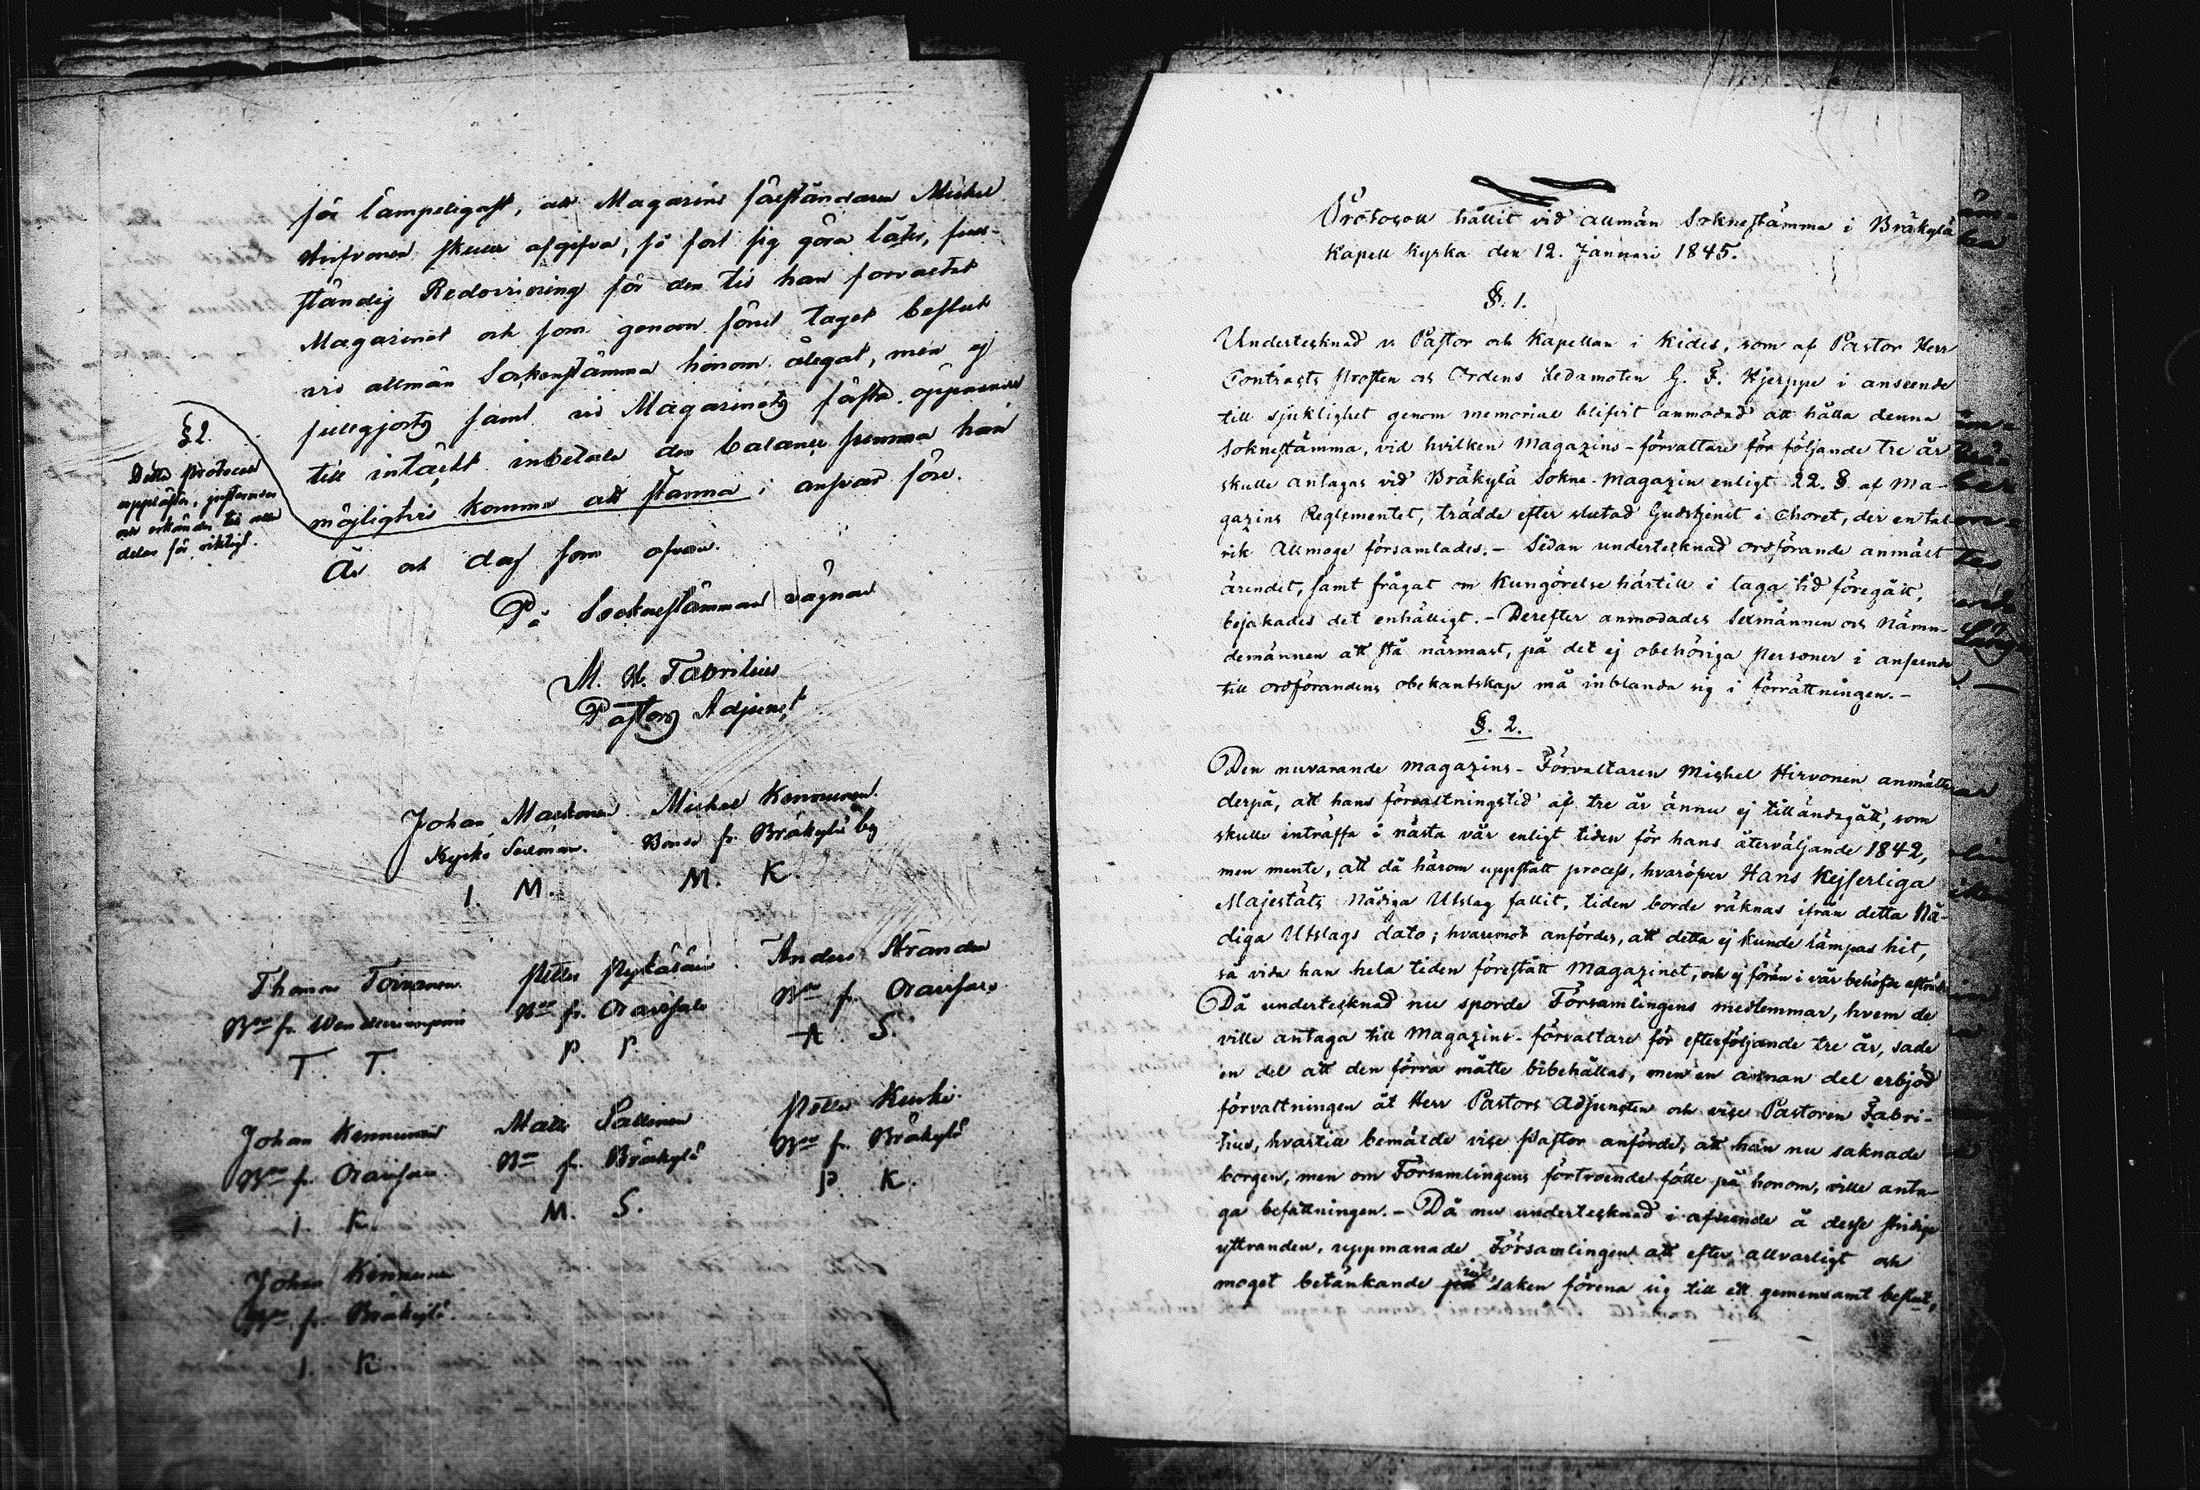 för lämpeligast, att Magasins föreståndaren Michel
Hirfvonen skulle afgifva, så fort sig göra låter, full-
ständig Redovisning för den tid han förvaltat
Magasinet och som genom förut taget beslut
vid allmän Sockenstämma honom ålegat, men ej
fullgjorts samt vid Magasinets första öppnande
till intäckt inbetala den balance summa han
möjligtvis komma att stanna i ansvar före.
§ 2.
Detta Protocoll
upplästes, justerades
och erkändes till alla
delar för riktigt.
År och dag som ofvan.
På Socknestämmans vägnar
M. W. Fabritius
Pastors Adjunct
Johan Michel Kennunen
Kyrko Sexman. Bonde fr. Bräkylä by
I. M. M. K.
Thomas Toivanen Petter Anders
Bde fr. Bde fr. Oravisalo Bde fr. Oravisalo
T. T. P. P. A. S.
Johan Kennunen Mats Sallinen Petter
Bde fr. Oravisalo Bde fr. Bräkylä Bde fr. Bräkylä
I. K. M. S. P. K.
Johan Kennunen
Bde fr. Bräkylä
I. K.
Protocoll hållit vid allmän Soknestämma i Bräkylä
Kapell kyrka den 12. Januari 1845.
§. 1.
Undertecknad v. Pastor och Kapellan i Kides, som af Pastor Herr
Contracts Prosten och Ordens Ledamoten G. F. Hjerppe i anseende
till sjuklighet genom memorial blifvit anmodad att hålla denna
Soknestämma, vid hvilken Magazins-förvaltare för följande tre år
skulle antagas vid Bräkylä Sokne-Magazin enligt 22. §. af Ma-
gazins Reglementet, trädde efter slutad Gudstjenst i Choret, der en tal-
rik Allmoge församlades. – Sedan undertecknad ordförande anmält
ärendet, samt frågat om Kungörelse härtill i laga tid föregått,
bejakades det enhälligt. – Derefter anmodades Sexmännen och Nämn-
demännen att stå närmast, på det ej obehöriga personer i anseende
till ordförandens obekantskap må inblanda sig i förrättningen. –
§. 2.
Den nuvarande Magazins-Förvaltaren Michel Hirvonen anmälte
derpå, att hans förvaltningstid af tre år ännu ej tilländagått, som
skulle inträffa i nästa vår enligt tiden för hans återväljande 1842,
men mente, att då härom uppstått process, hvaröfver Hans Kejserliga
Majestäts Nådiga Utslag fallit, tiden borde räknas ifrån detta Nå-
diga Utslags dato; hvaremot anfördes, att detta ej kunde lämpas hit,
så vida han hela tiden förestått Magazinet, och ej förän i vår behöfde afträda
Då undertecknad nu sporde Församlingens medlemmar, hvem de
ville antaga till Magazins-förvaltare för efterföljande tre år, sade
en del att den förra måtte bibehållas, men en annan del erbjöd
förvaltningen åt Herr Pastors Adjuncten och vice Pastoren Fabri-
tius, hvartill bemälde vice Pastor anförde, att han nu saknade
borgen, men om Församlingens förtroende fölle på honom, ville anta-
ga befattningen. – Då nu undertecknad i afseende å desse stridige
yttranden, uppmanade Församlingen att efter allvarligt och
moget betänkande saken förena sig till ett gemensamt beslut,